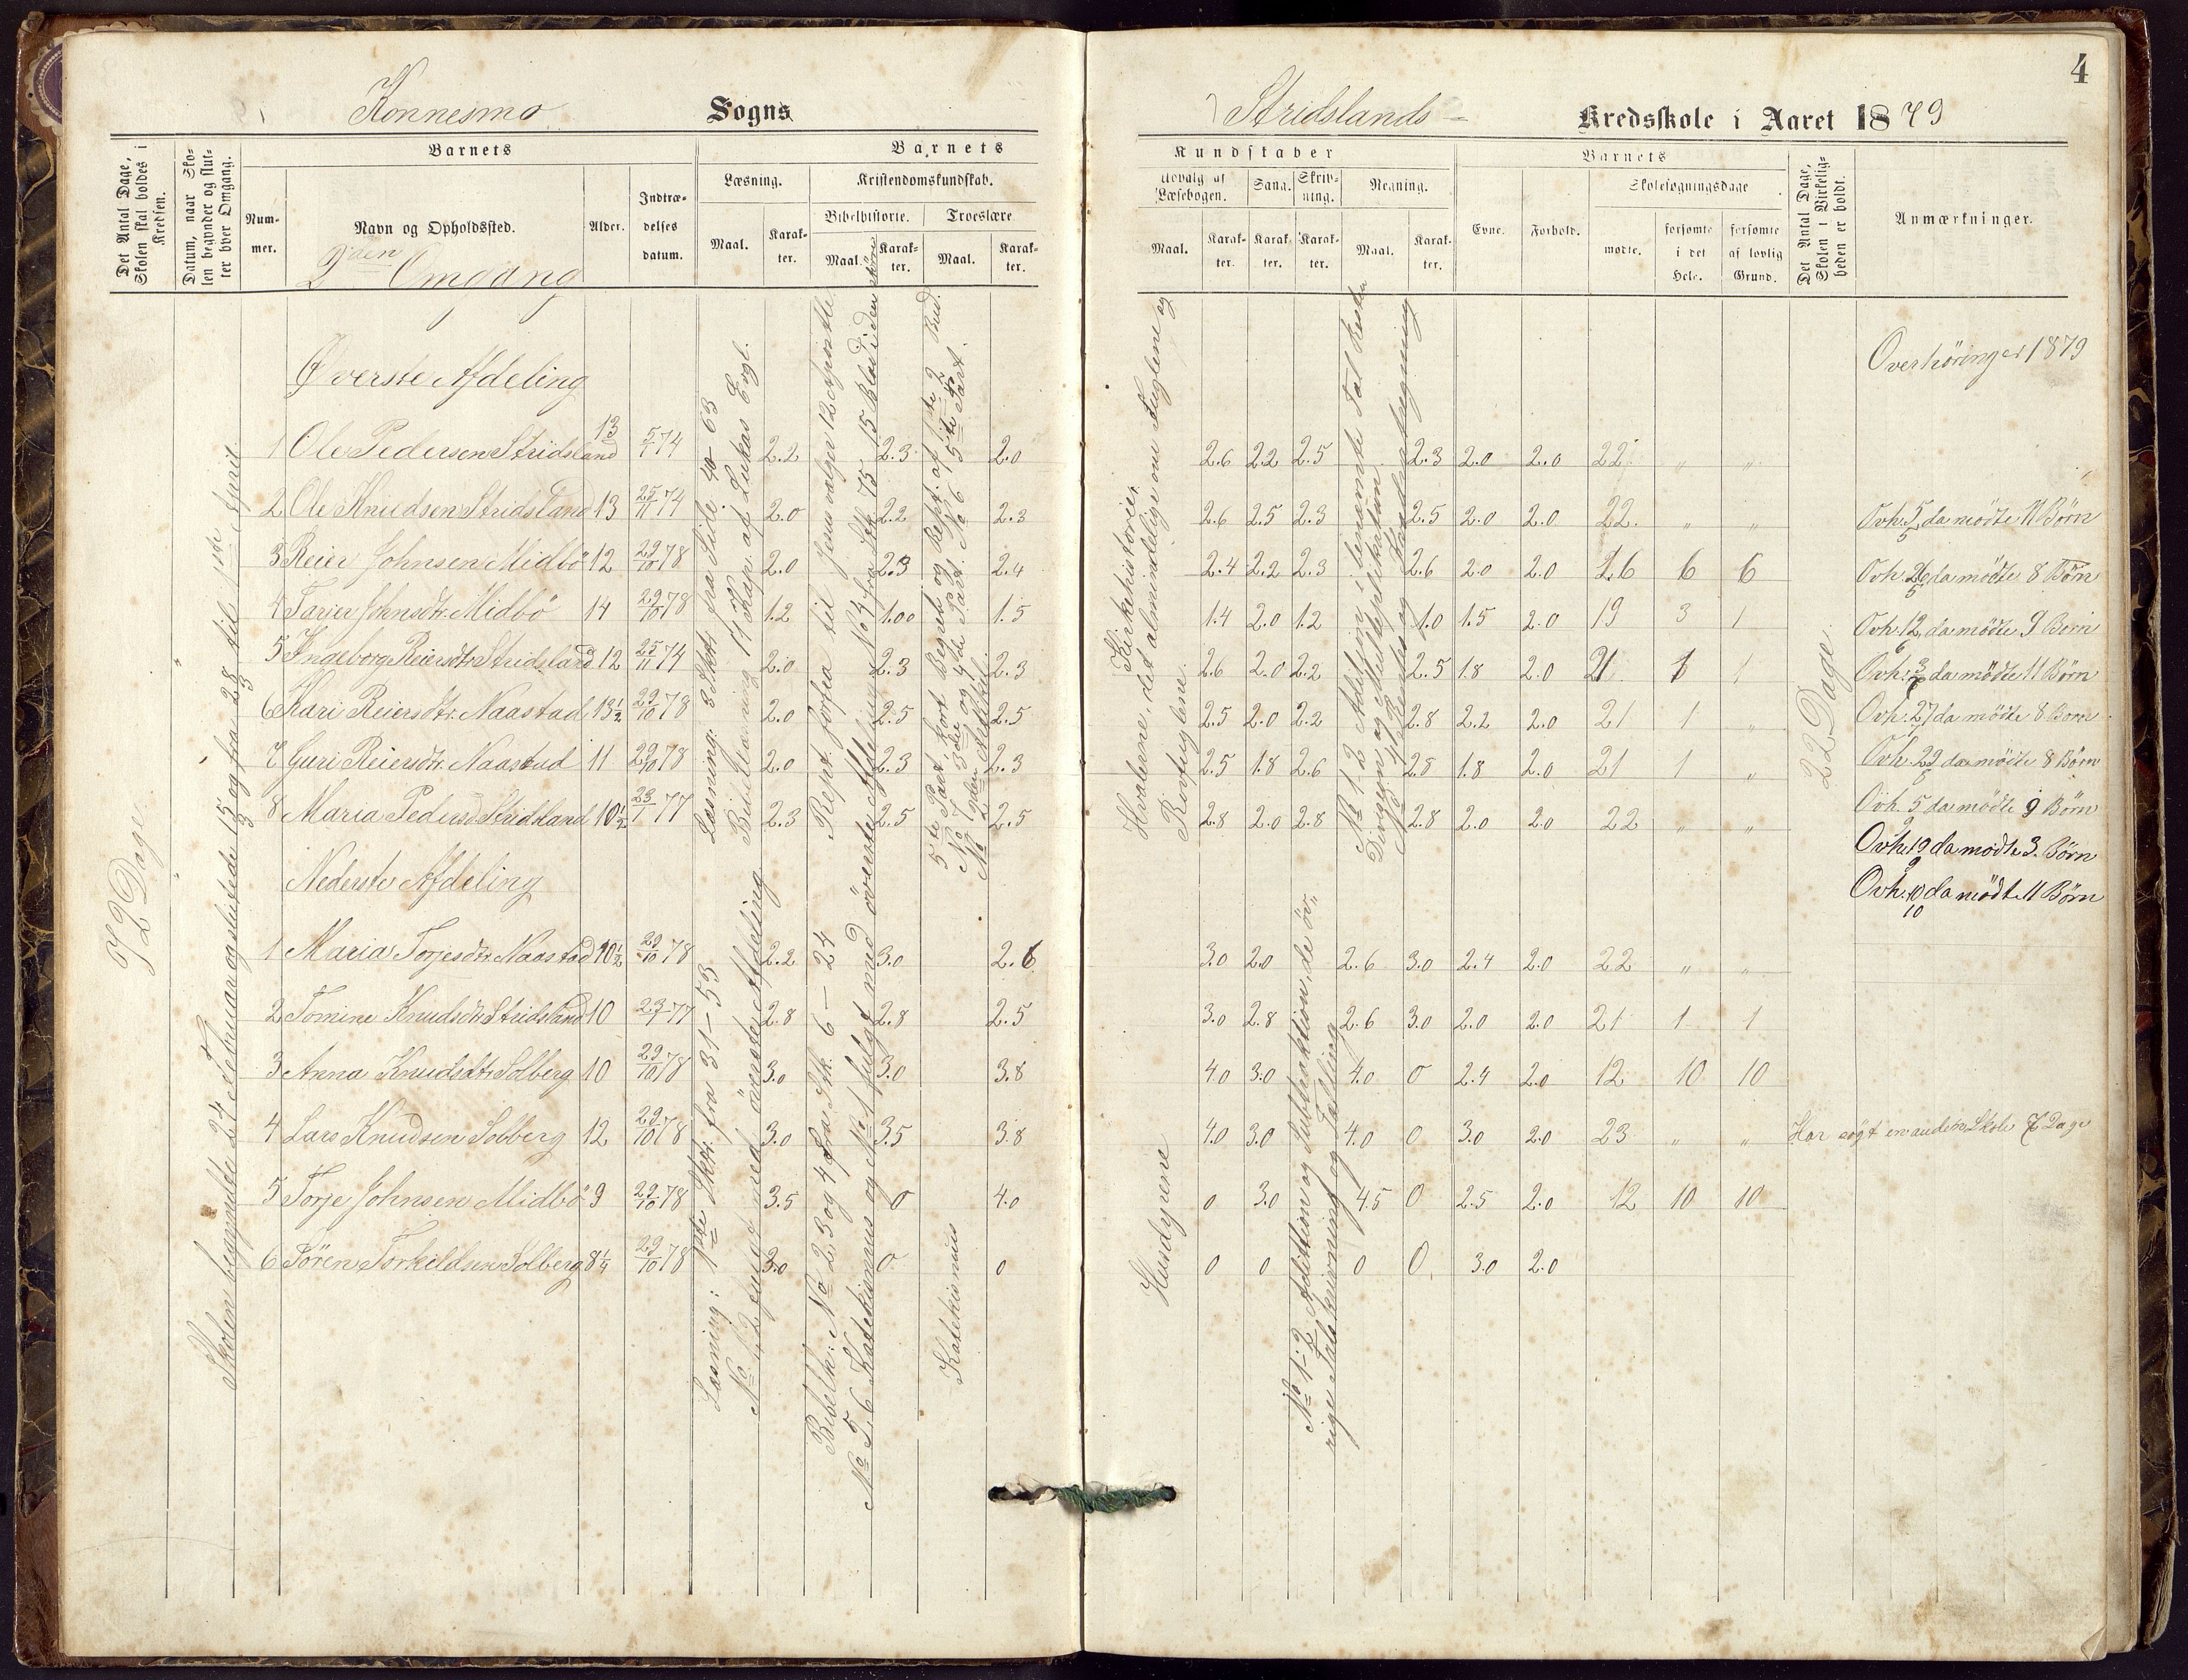 Konnesmo Sogns
Det Antal Dage, Skolen skal holdes i Kredsen.
Datum, naar Skolen begynder og slutter hver Omgang.
Barnets
Nummer.
Navn og Opholdssted.
2den Omgang
Alder.
Indtrædelses datum.
Barnets
Læsning.
Maal.
Karakter.
Kristendomskundskab.
Bibelhistorie.
Maal.
Karakter.
Troeslære
Maal.
Karakter.
72 Dage
Øverste Afdeling
1 Ole Pedersen Stridsland 13 5/7 74 2.2 2.3 2.0
2 Ole Knudsen Stridsland 13 25/11 74 2.0 2.2 2.3
3 Reier Johnsen Midbö 12 29/10 78 2.0 2.3 2.4
4 Tarier Johnsdtr. Midbö 14 29/10 78 1.2 1.00 1.5
5 Ingeborg Reiersdtr Stridsland 12 25/11 74 2.0 2.3 2.3
6 Kari Reiersdtr. Naastad 13½ 29/10 78 2.0 2.5 2.5
7 Guri Reiersdtr. Naastad 11 29/10 78 2.0 2.3 2.3
8 Maria Pedersd Stridsland 10½ 23/7 77 2.3 2.5 2.5
Nederste Afdeling
1 Maria Torjesdtr Naastad 10½ 29/10 78 2.2 3.0 2.6
2 Tomine Knudsdtr Stridsland 10 23/7 77 2.8 2.8 2.5
3 Anna Knudsdtr Solberg 10 29/10 78 3.0 3.0 3.8
4 Lars Knudsen Solberg 12 29/10 78 3.0 3.5 3.8
5 Torje Johnsen Midbö 9 29/10 78 3.5 0 4.0
6 Sören Torkildsen Solberg 8¼ 29/10 78 3.0 0 0
Skolen begyndte 24 Februar og sluttede 15/3 og fra 28/3 til 1ste April
Læsning: 3 Skr. fra Side 40 - 63
Bibellæsning 17 Kap. af Lukas Evgl.
Læsning: 1ste Skr. fra 31 - 53
Rept. forfra til Jesus vælger 12 Apostle
No 4 fra Stk. 75
Bibelh: No 2. 3 og 4 fra Stk. 6 - 24
No 5. 6 Katekismus og No 1 fulgt med överste Afdeling
Katekismus
4
Stridslands- Kredsskole i Aaret 1879
Kundskaber
Udvalg af Læsebogen.
Maal.
Karakter.
Sang.
Karakter.
Skrivning.
Karakter.
Regning.
Maal.
Karakter.
Barnets
Evne.
Forhold.
Skolesøgningsdage
mødte.
forsømte i det Hele.
forsømte af lovlig Grund.
Det Antal Dage, Skolen i Virkeligheden er holdt.
Anmærkninger.
2.6 2.2 2.5 2.3 2.0 2.0 22 " "
2.6 2.5 2.3 2.5 2.0 2.0 22. " "
2.4 2.2 2.3 2.6 2.0 2.0 16 6 6
1.4 2.0 1.2 1.0 1.5 2.0 19 3 1
2.6 2.0 2.2 2.5 1.8 2.0 21 1 1
2.5 2.0 2.2 2.8 2.2 2.0 21 1 "
2.5 1.8 2.6 2.8 1.8 2.0 21 1 "
2.8 2.0 2.8 2.8 2.0 2.0 22 " "
3.0 2.0 2.6 3.0 2.4 2.0 22 " "
3.0 2.8 2.6 3.0 2.0 2.0 21 1 1
4.0 3.0 4.0 0 2.4 2.0 12 10 10
4.0 3.0 4.0 0 3.0 2.0 23 " " Har søgt en anden Skole 7 Dage
0 3.0 4.5 0 2.5 2.0 12 10 10
0 0 0 0 3.0 2.0
Kirkehistorier
Hvalene, det almindelige om Fuglene og
Rovfuglene
Husdyrene
No 1-2 Addition og Subtraktion, de öv-
rige Talskrivning og Tælling
22 Dage.
Overhöringer 1879
Ovh. 5/5 da mödte 11 Börn
Ovh. 26/5 da mödte 8 Börn
Ovh. 12/6 da mödte 9 Börn
Ovh. 3/7 da mödte 11 Börn
Ovh. 27 da mödte 8 Börn
Ovh. 29/8 da mödte 8 Börn
Ovh. 5/9 da mödte 9 Börn
Ovh. 19/9 da mödte 3. Börn
Ovh. 10/10 da mödte 11 Börn